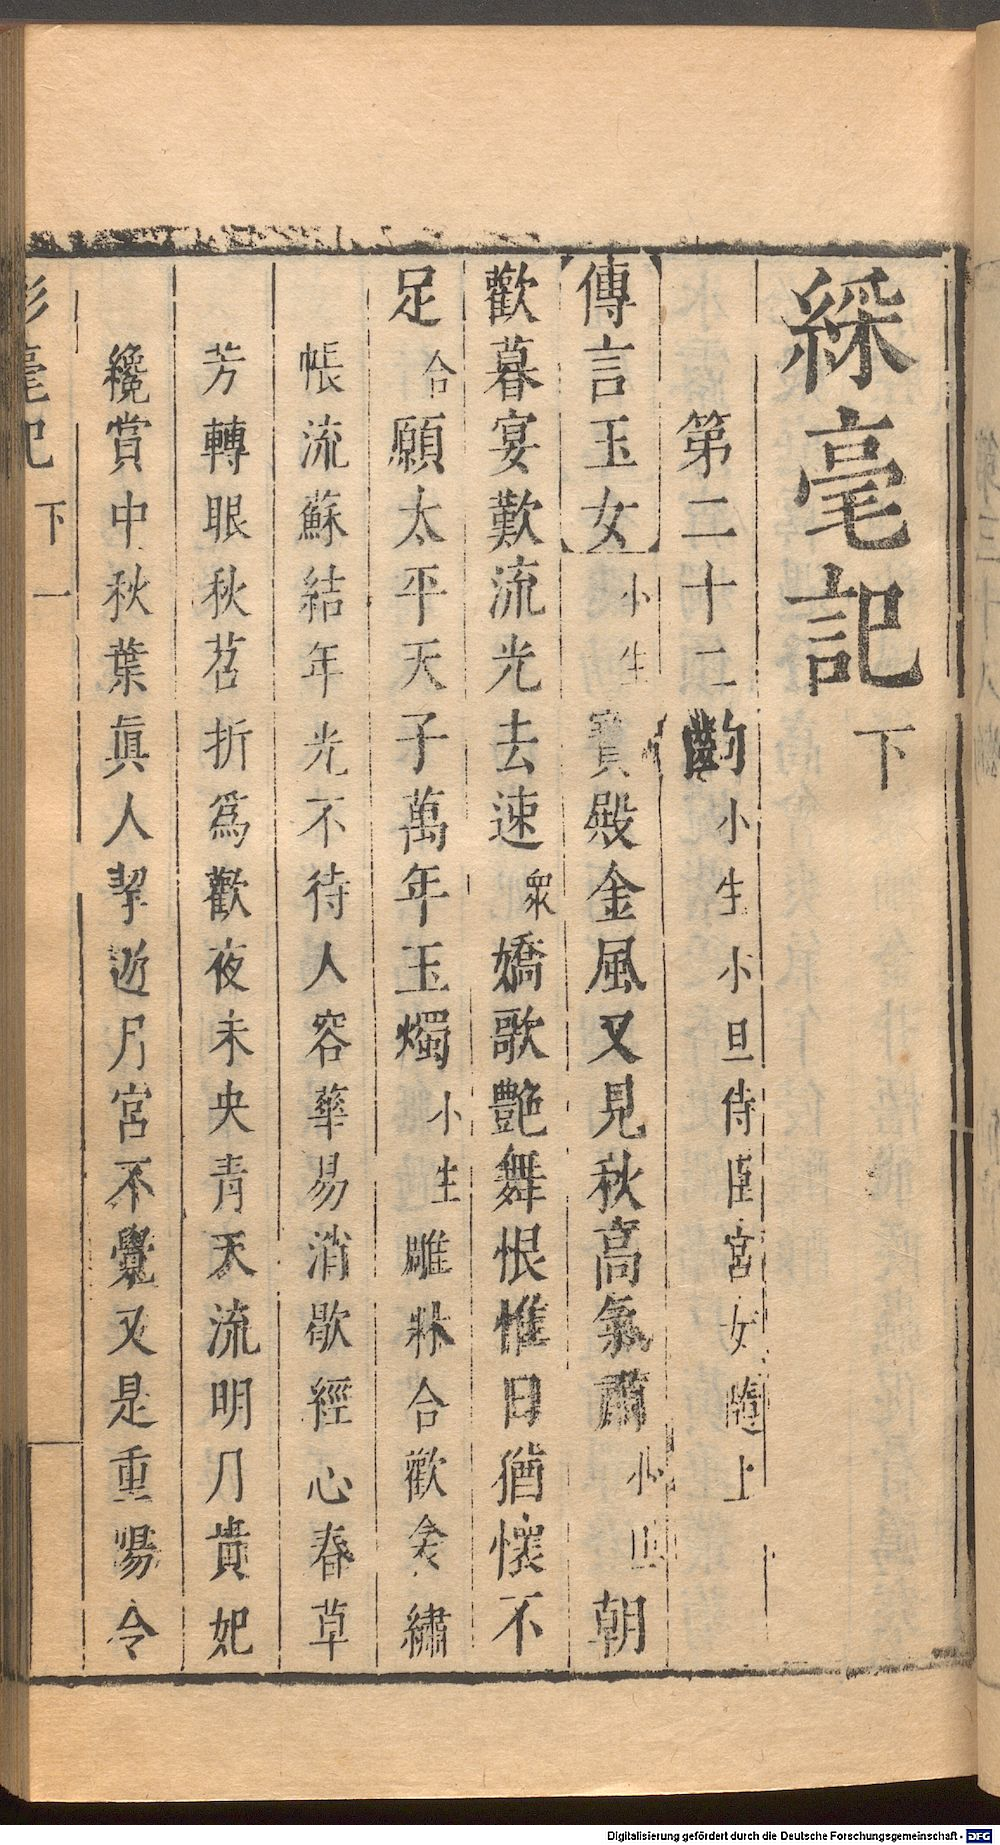 綵毫記下
第二十二齣小生小旦侍臣宮女隨上
傳言玉女小生寶殿金風又見秋高氣肅小旦朝
歡暮宴歎流光去速衆嬌歌艷舞恨惟日猶懷不
足合願太平天子萬年玉燭小生雕牀合歡金繡
帳流蘇結年光不待人容華易消歇經心春草
芳轉眼秋苕折爲歡夜未央青天流明月貴妃
纔賞中秋葉眞人挈遊月宮不覺又是重陽令
彩毫記 下 一
Digitalisierung gefördert durch die Deutsche Forschungsgemeinschaft - DFG